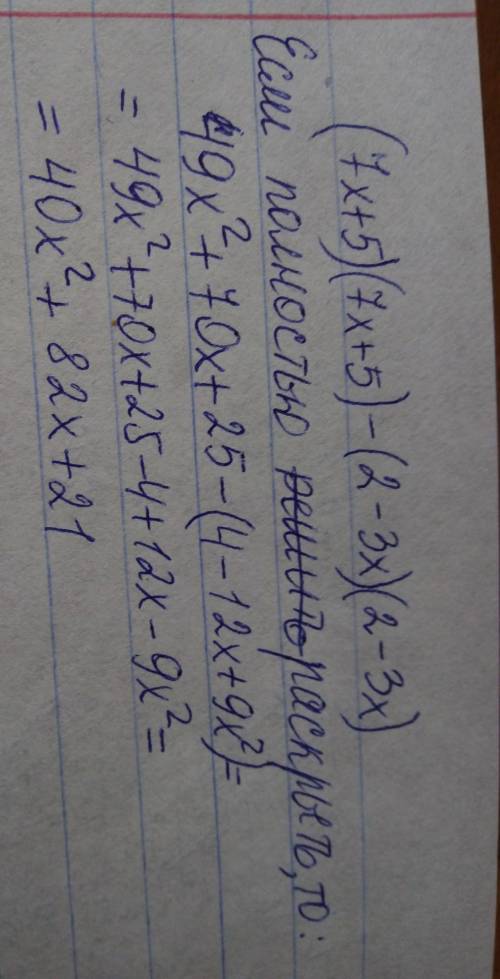 (7x+5)(7x+5)-(2-3x)(2-3x)
Если полностью раскрыть, то:
49x²+70x+25-(4-12x+9x²)=
=49x²+70x+25-4+12x-9x²=
=40x²+82x+21